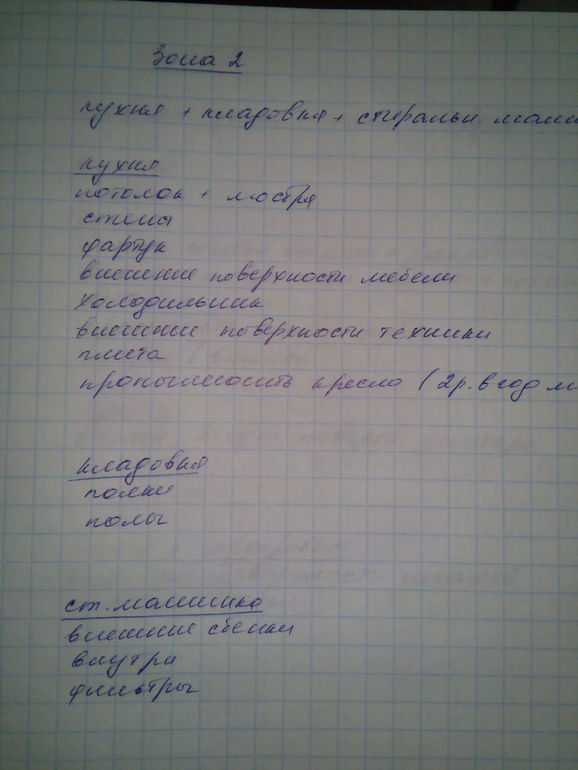 Зона 2
кухня + кладовка + стиральн. маши
кухня
потолок + люстра
стены
фартук
внешние поверхности мебели
холодильник
внешние поверхности техники
плита
пропылесосить кресло (2р. в год м
кладовка
полки
полы
ст. машинка
внешние стенки
внутри
фильтры